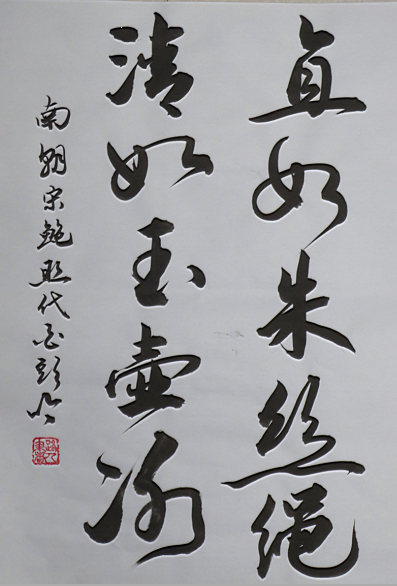 直如朱丝绳
清如玉壺冰
南朝宋鲍照代白頭吟